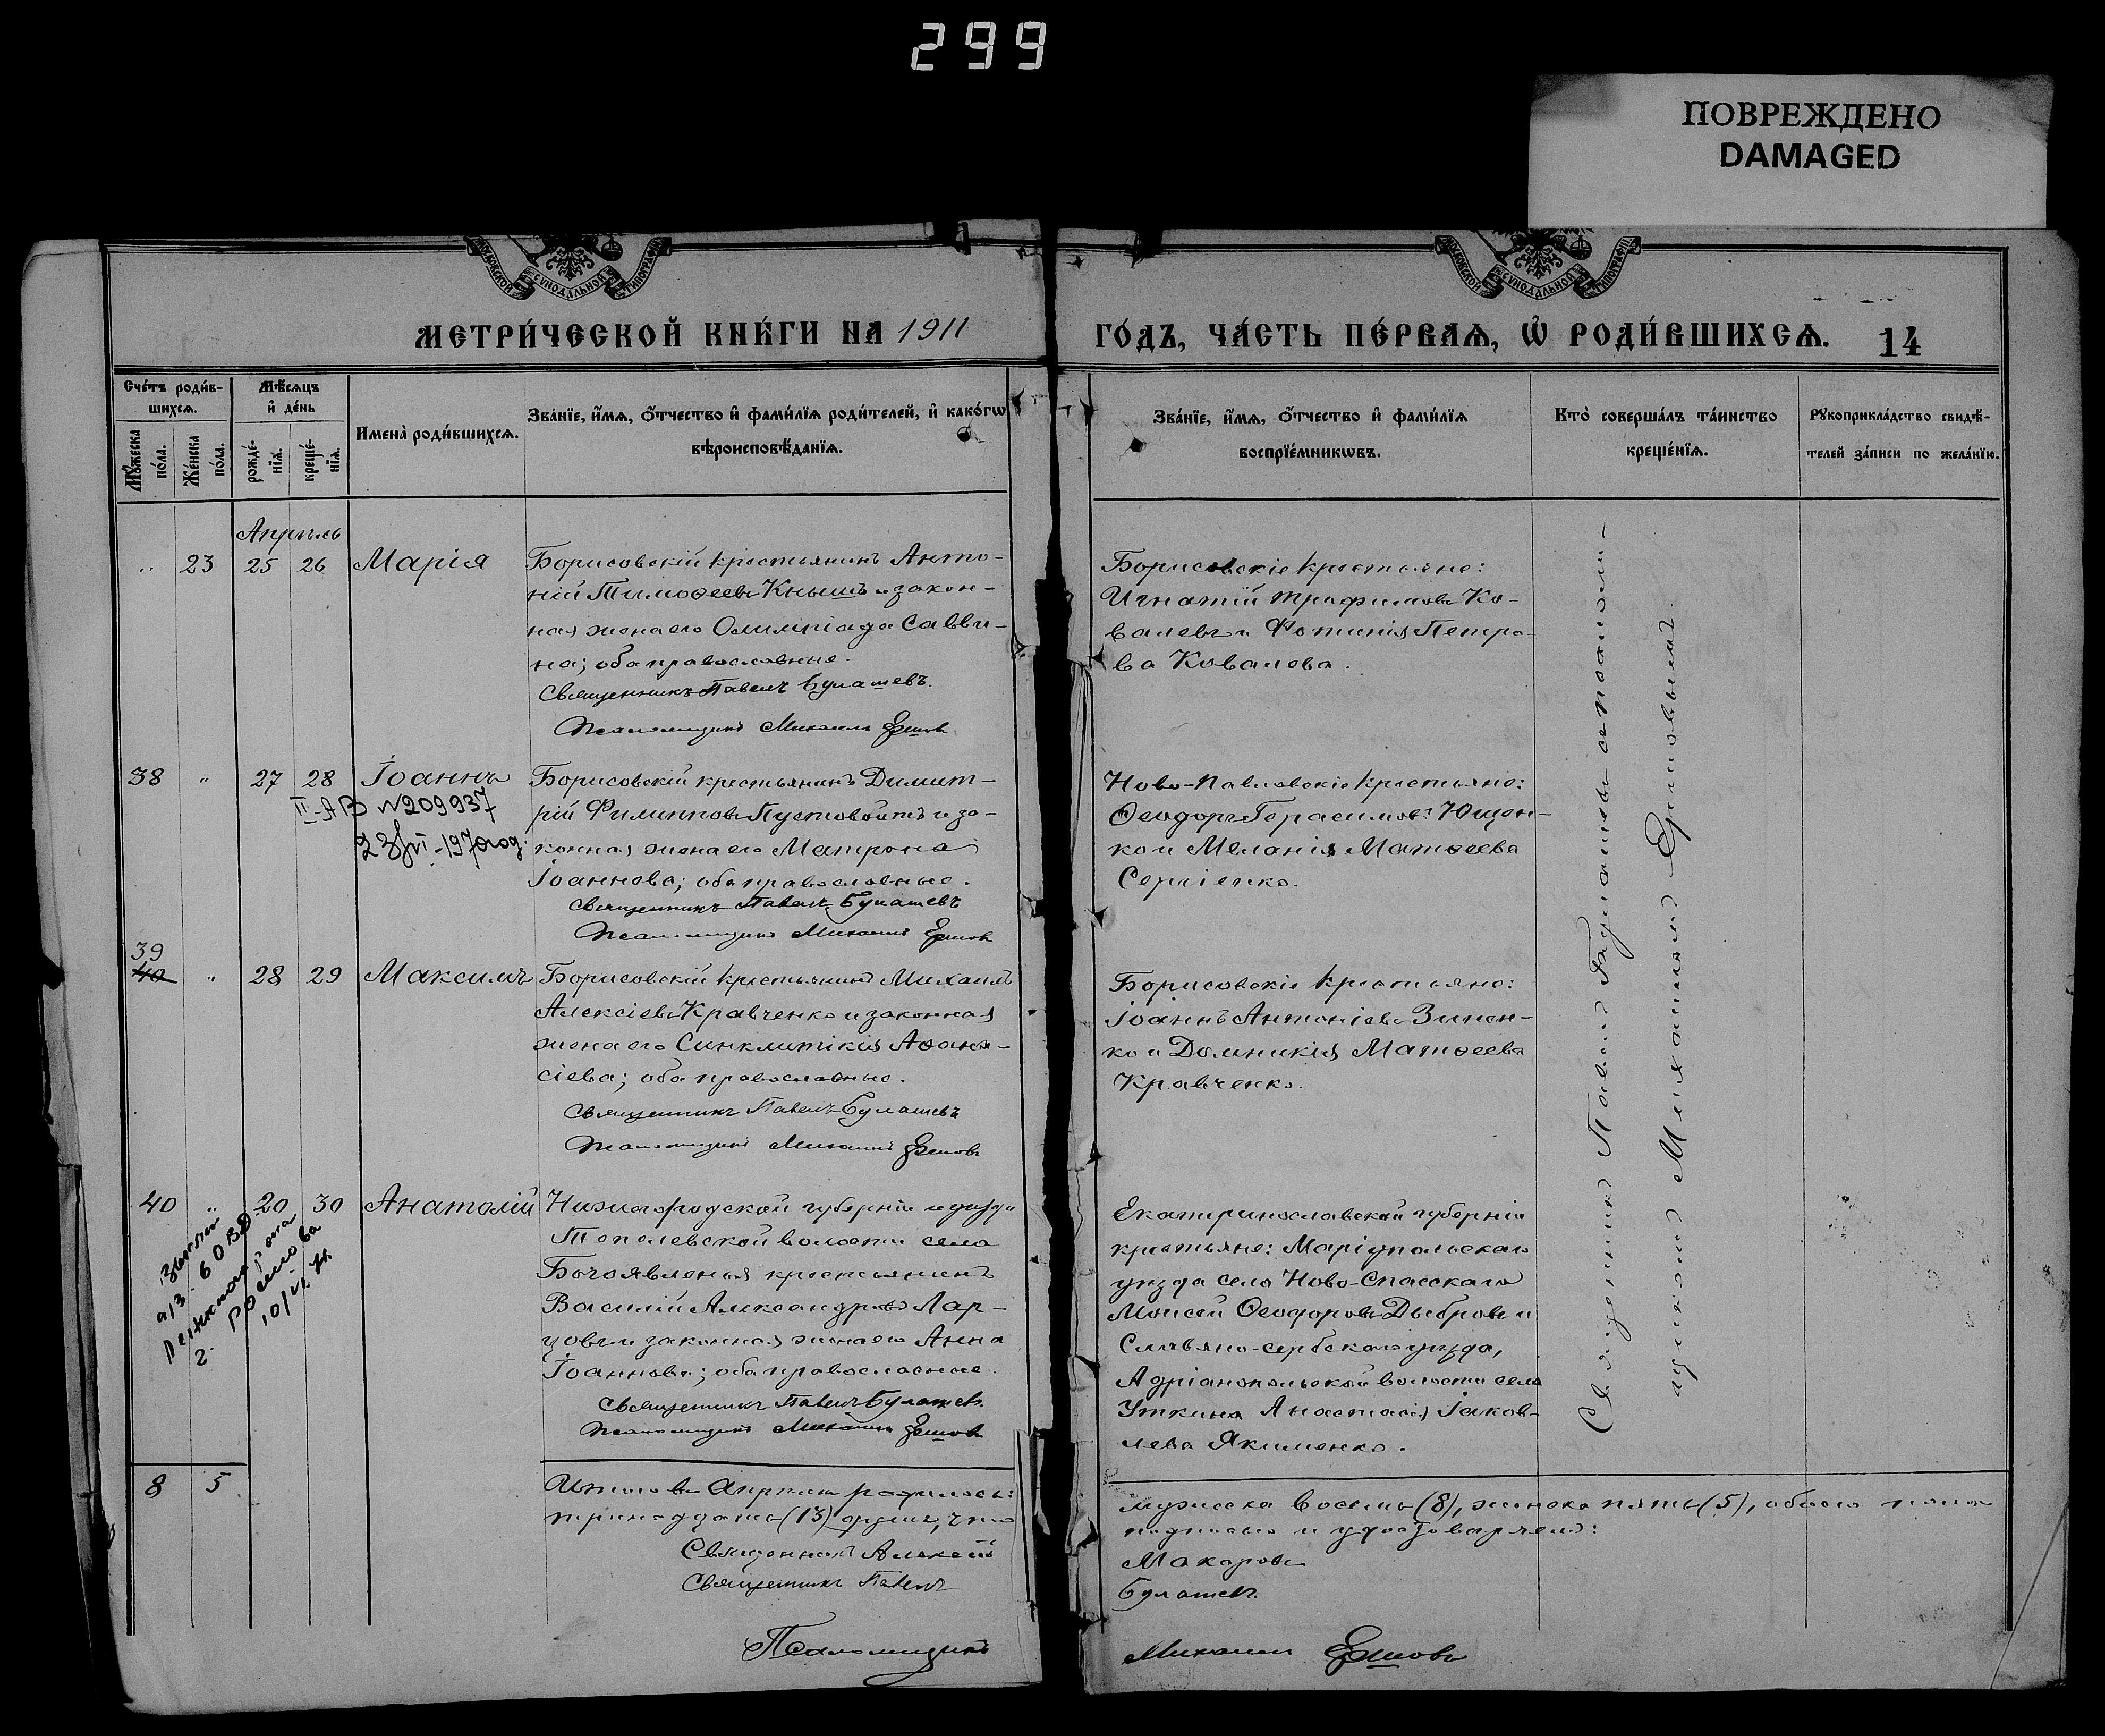 299
ПОВРЕЖДЕНО
DAMAGED
МОСКОВСКОЙ СУНОДАЛЬНОЙ ТИПОГРАФІИ
МОСКОВСКОЙ СУНОДАЛЬНОЙ ТИПОГРАФІИ
МЕТРИ́ЧЕСКОЙ КНИ́ГИ НА 1911
ГО́ДЪ, ЧА́СТЬ ПЕ́РВАѦ, Ѡ҆ РОДИ́ВШИХСѦ. 14
Сче́тъ роди́в-
шихсѧ.
Мꙋ́жеска
по́ла.
Же́нска
по́ла.
Мѣ́сѧцъ
и҆ де́нь
рожде́-
нїѧ.
креще́-
нїѧ.
Имена̀ роди́вшихсѧ.
Зва́нїе, и҆́мѧ, ѻ҆́тчество и҆ фами́лїѧ роди́телей, и҆ како́гѡ
вѣроисповѣ́данїѧ.
Зва́нїе, и҆́мѧ, ѻ҆́тчество и҆ фами́лїѧ
воспрїе́мникѡвъ.
Кто̀ соверша́лъ та́инство
креще́нїѧ.
Рꙋкоприкла́дство свидѣ́-
телей за́писи по жела́нїю.
Апрѣль
„ 23 25 26 Марія
Борисовскій крестьянинъ Анто-
ній Тимоѳеевъ Кнышъ и закон-
ная жена его Олимпіада Савви-
на; оба православные.
Священникъ Павелъ Булашевъ.
Псаломщикъ Михаилъ Ершовъ
Борисовскіе крестьяне:
Игнатій Трофимовъ Ко-
валевъ и Фотинія Петро-
ва Ковалева.
38 „ 27 28 Іоаннъ
II-АВ №209937
23/VI-1970год.
Борисовскій крестьянинъ Димит-
рій Филипповъ Пустовойтъ и за-
конная жена его Матрона
Іоаннова; оба православные.
Священникъ Павелъ Булашевъ
Псаломщикъ Михаилъ Ершовъ
Ново-Павловскіе крестьяне:
Ѳеодоръ Герасимовъ Ющен-
ко и Меланія Матѳеева
Сергіенко.
39
40 „ 28 29 Максимъ
Борисовскій крестьянинъ Михаилъ
Алексіевъ Кравченко и законная
жена его Синклитикія Аѳана-
сіева; оба православные.
Священникъ Павелъ Булашевъ
Псаломщикъ Михаилъ Ершовъ
Борисовскіе крестьяне:
Іоаннъ Антоніевъ Зинен-
ко и Домникія Матѳеева
Кравченко.
40 „ 20 30 Анатолій
Нижегородской губерніи и уѣзда
Тепелевской волости села
Богоявленья крестьянинъ
Василій Александровъ Лар-
цовъ и законная жена его Анна
Іоаннова; оба православные.
Священникъ Павелъ Булашевъ.
Псаломщикъ Михаилъ Ершовъ
Екатеринославской губерніи
крестьяне: Маріупольскаго
уѣзда села Ново-Спасскаго
Моисей Ѳеодоровъ Дыбровъ и
Славяно-сербскаго уѣзда,
Адріанопольской волости села
Уткина Анастасія Іаков-
лева Якименко.
Священникъ Павелъ Булашевъ съ псалом-
щикомъ Михаиломъ Ершовымъ.
8 5
Итого въ Апрѣлѣ родилось:
тринадцать (13) душъ, что
Священникъ Алексій
Священникъ Павелъ
Псаломщикъ
мужеска восемь (8), женска пять (5), обоего пола
подписью и удостовѣряемъ:
Макаровъ
Булашевъ.
Михаилъ Ершовъ